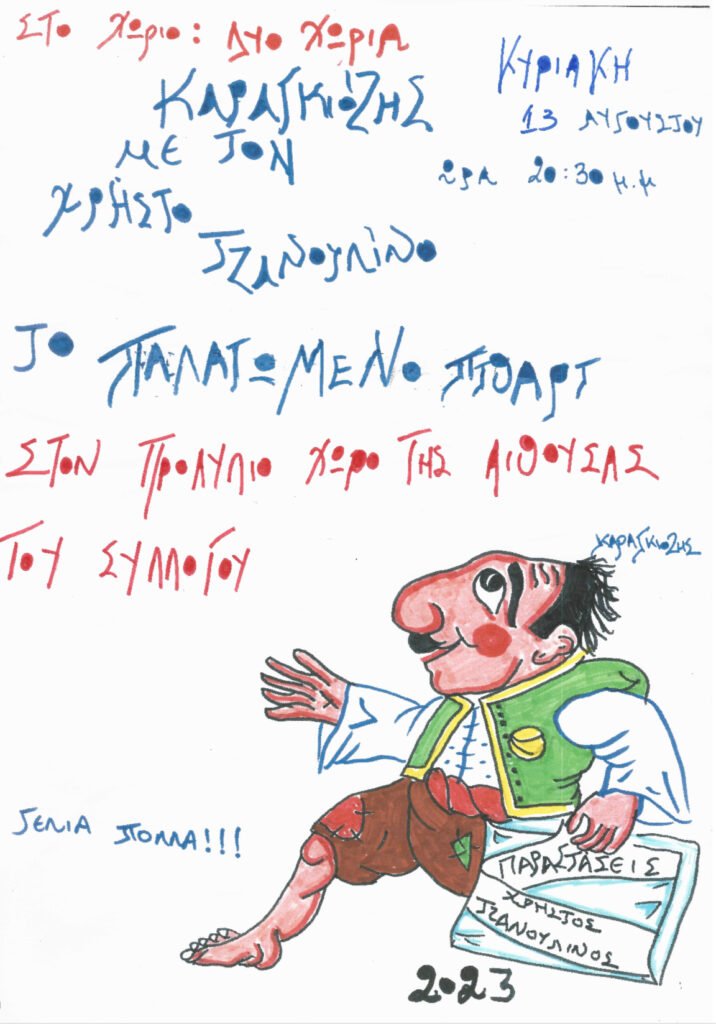 ΣΤΟ ΧΩΡΙΟ: ΔΥΟ ΧΩΡΙΑ
ΚΑΡΑΓΚΙΟΖΗΣ
ΜΕ ΤΟΝ
ΧΡΗΣΤΟ
ΤΖΑΝΟΥΛΙΝΟ
ΚΥΡΙΑΚΗ
13 ΑΥΓΟΥΣΤΟΥ
ΩΡΑ 20:30 μ.μ
ΤΟ ΠΑΛΑΤΩΜΕΝΟ ΠΙΘΑΡΙ
ΣΤΟΝ ΠΡΟΑΥΛΙΟ ΧΩΡΟ ΤΗΣ ΑΙΘΟΥΣΑΣ
ΤΟΥ ΣΥΛΛΟΓΟΥ
ΚΑΡΑΓΚΙΟΖΗΣ
ΓΕΛΙΑ ΠΟΛΛΑ!!!
ΠΑΡΑΣΤΑΣΕΙΣ
ΧΡΗΣΤΟΣ
ΤΖΑΝΟΥΛΙΝΟΣ
2023